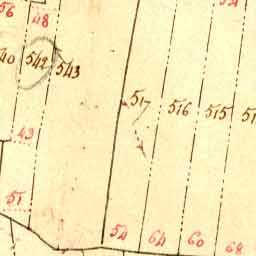 56
48
542
543
517
516
515
43
51
54
64
60
68